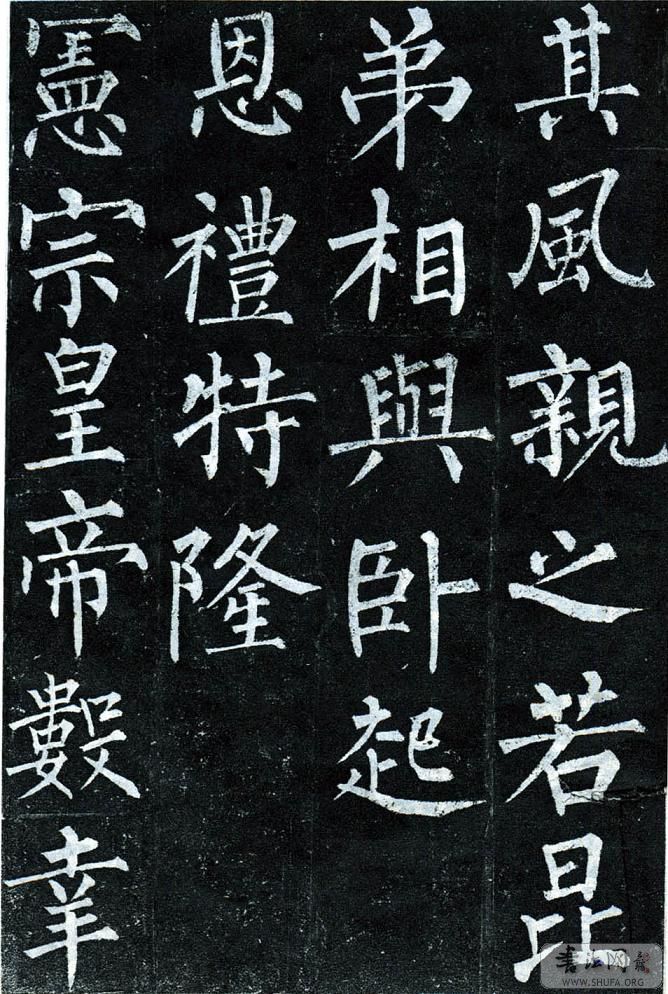 其風親之若昆
弟相與卧起
恩禮特隆
憲宗皇帝數幸
書法网
WWW.SHUFA.ORG